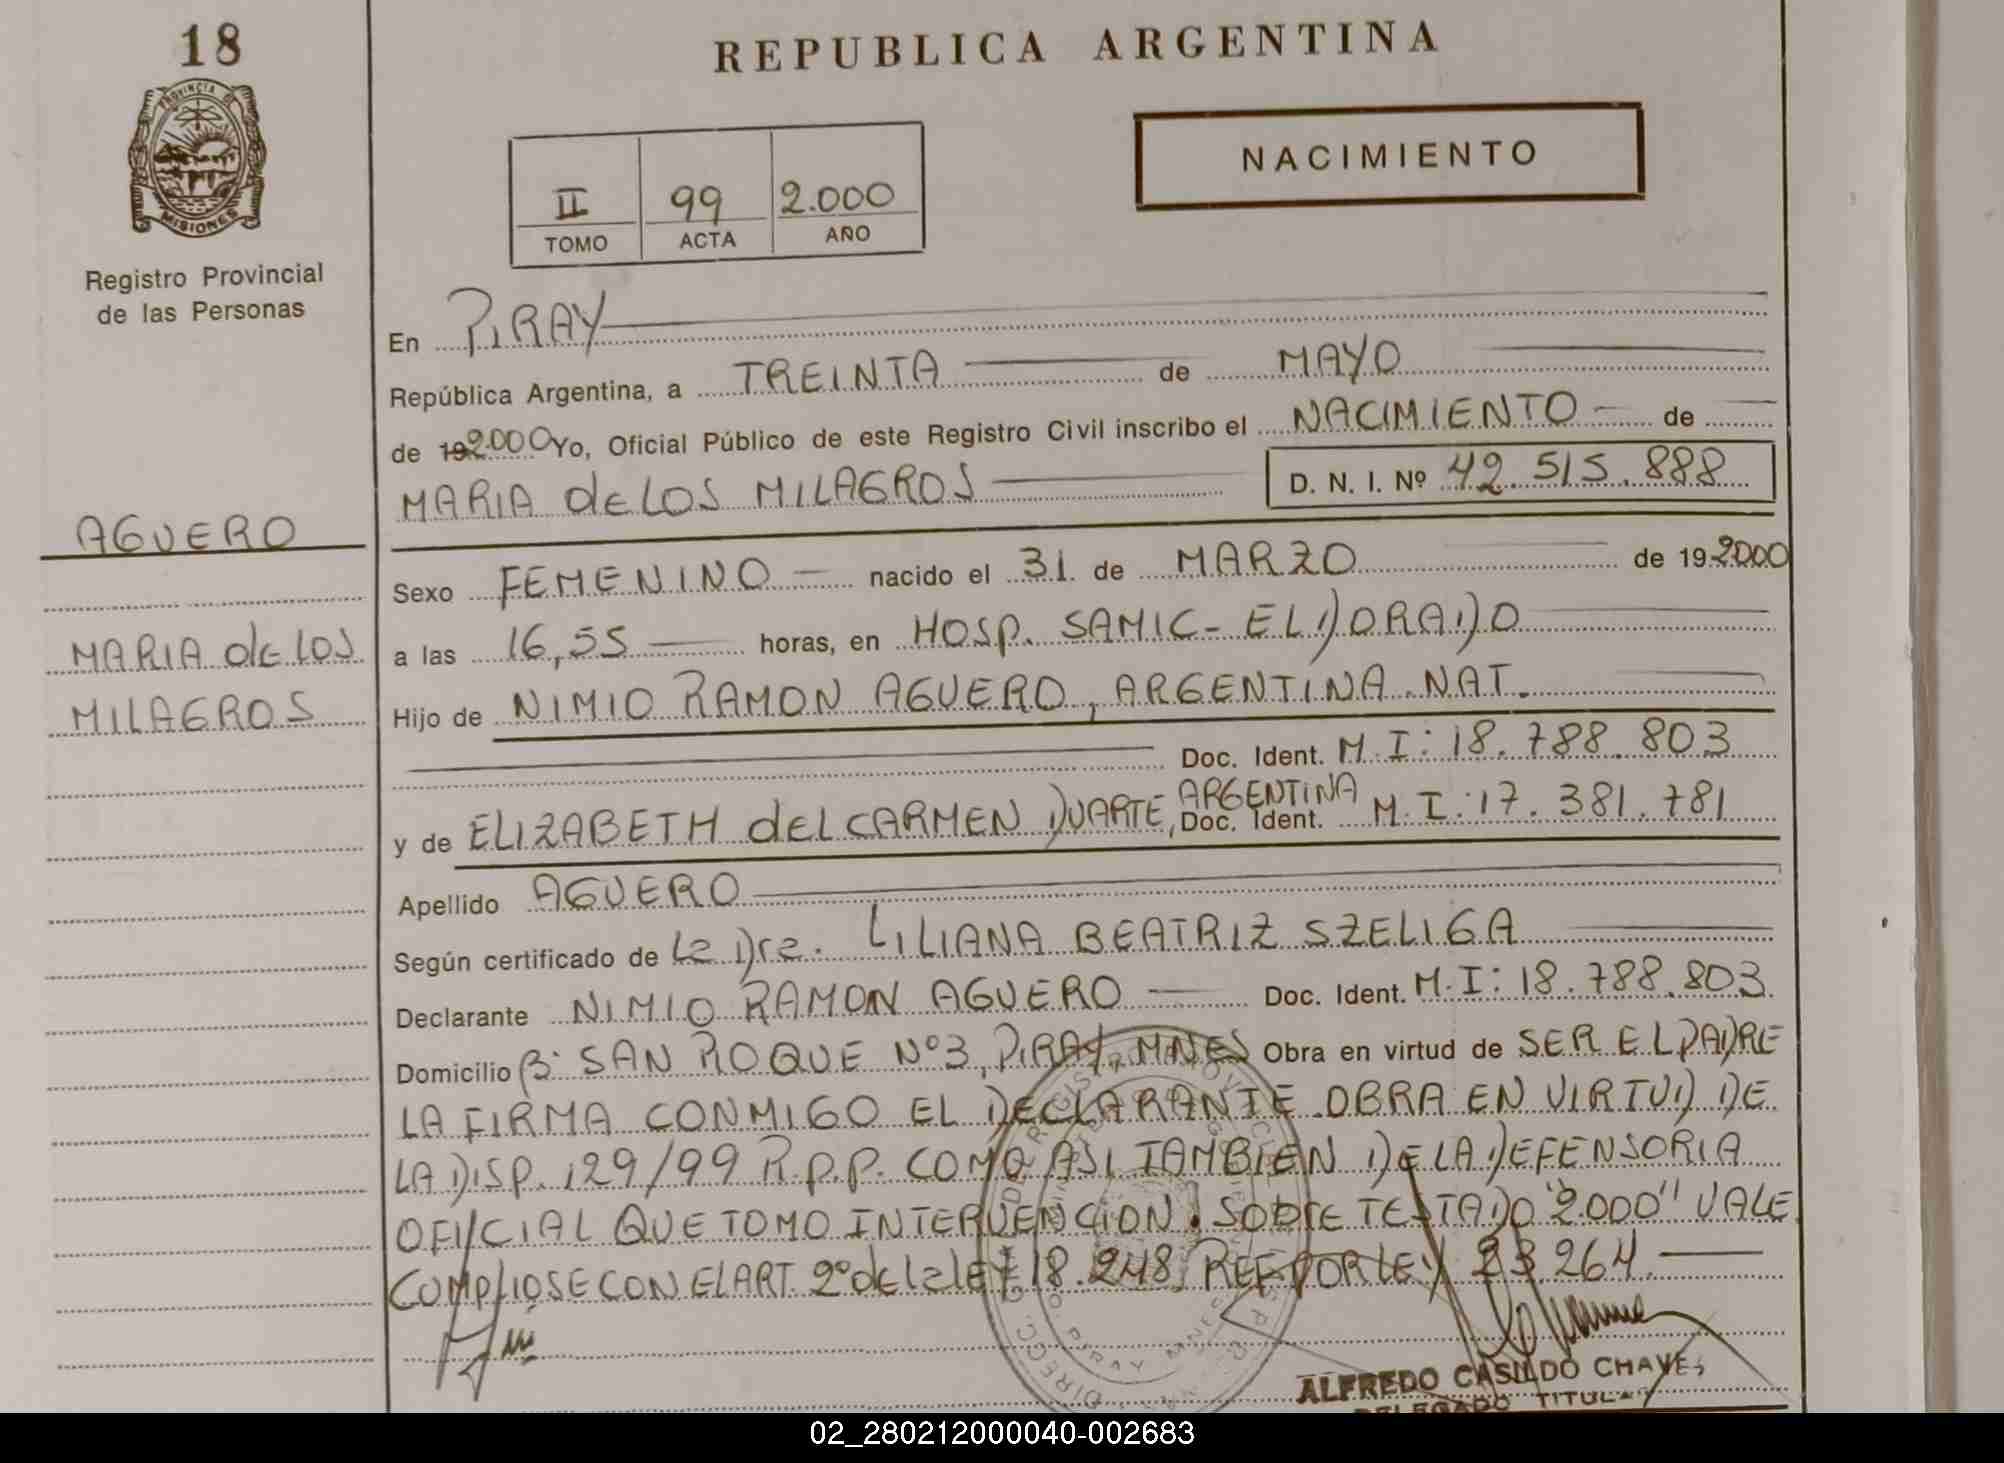 18
REPUBLICA ARGENTINA
PROVINCIA DE
MISIONES
NACIMIENTO
II 99 2.000
TOMO ACTA AÑO
Registro Provincial
de las Personas
En PIRAY
República Argentina, a TREINTA de MAYO
de 19 2.000 Yo, Oficial Público de este Registro Civil inscribo el NACIMIENTO de
MARIA de LOS MILAGROS D. N. I. Nº 42.515.888
AGUERO
MARIA de LOS
MILAGROS
Sexo FEMENINO nacido el 31 de MARZO de 19 2000
a las 16,55 horas, en HOSP. SAMIC - ELDORADO
Hijo de NIMIO RAMON AGUERO, ARGENTINA NAT.
Doc. Ident. M.I: 18.788.803
y de ELIZABETH del CARMEN DUARTE, ARGENTINA Doc. Ident. M.I: 17.381.781
Apellido AGUERO
Según certificado de la Dra. LILIANA BEATRIZ SZELIGA
Declarante NIMIO RAMON AGUERO Doc. Ident. M.I: 18.788.803
Domicilio Bº SAN ROQUE Nº3, PIRAY MNES Obra en virtud de SER EL PADRE
LA FIRMA CONMIGO EL DECLARANTE OBRA EN VIRTUD DE
LA DISP. 129/99 R.P.P. COMO ASI TAMBIEN DE LA DEFENSORIA
OFICIAL QUE TOMO INTERVENCION. SOBRE TESTADO "2.000" VALE
CUMPLIOSE CON EL ART. 2º de la ley 18.248, REF POR LEY 23.264
ALFREDO CASILDO CHAVES
DELEGADO TITULAR
02_280212000040-002683